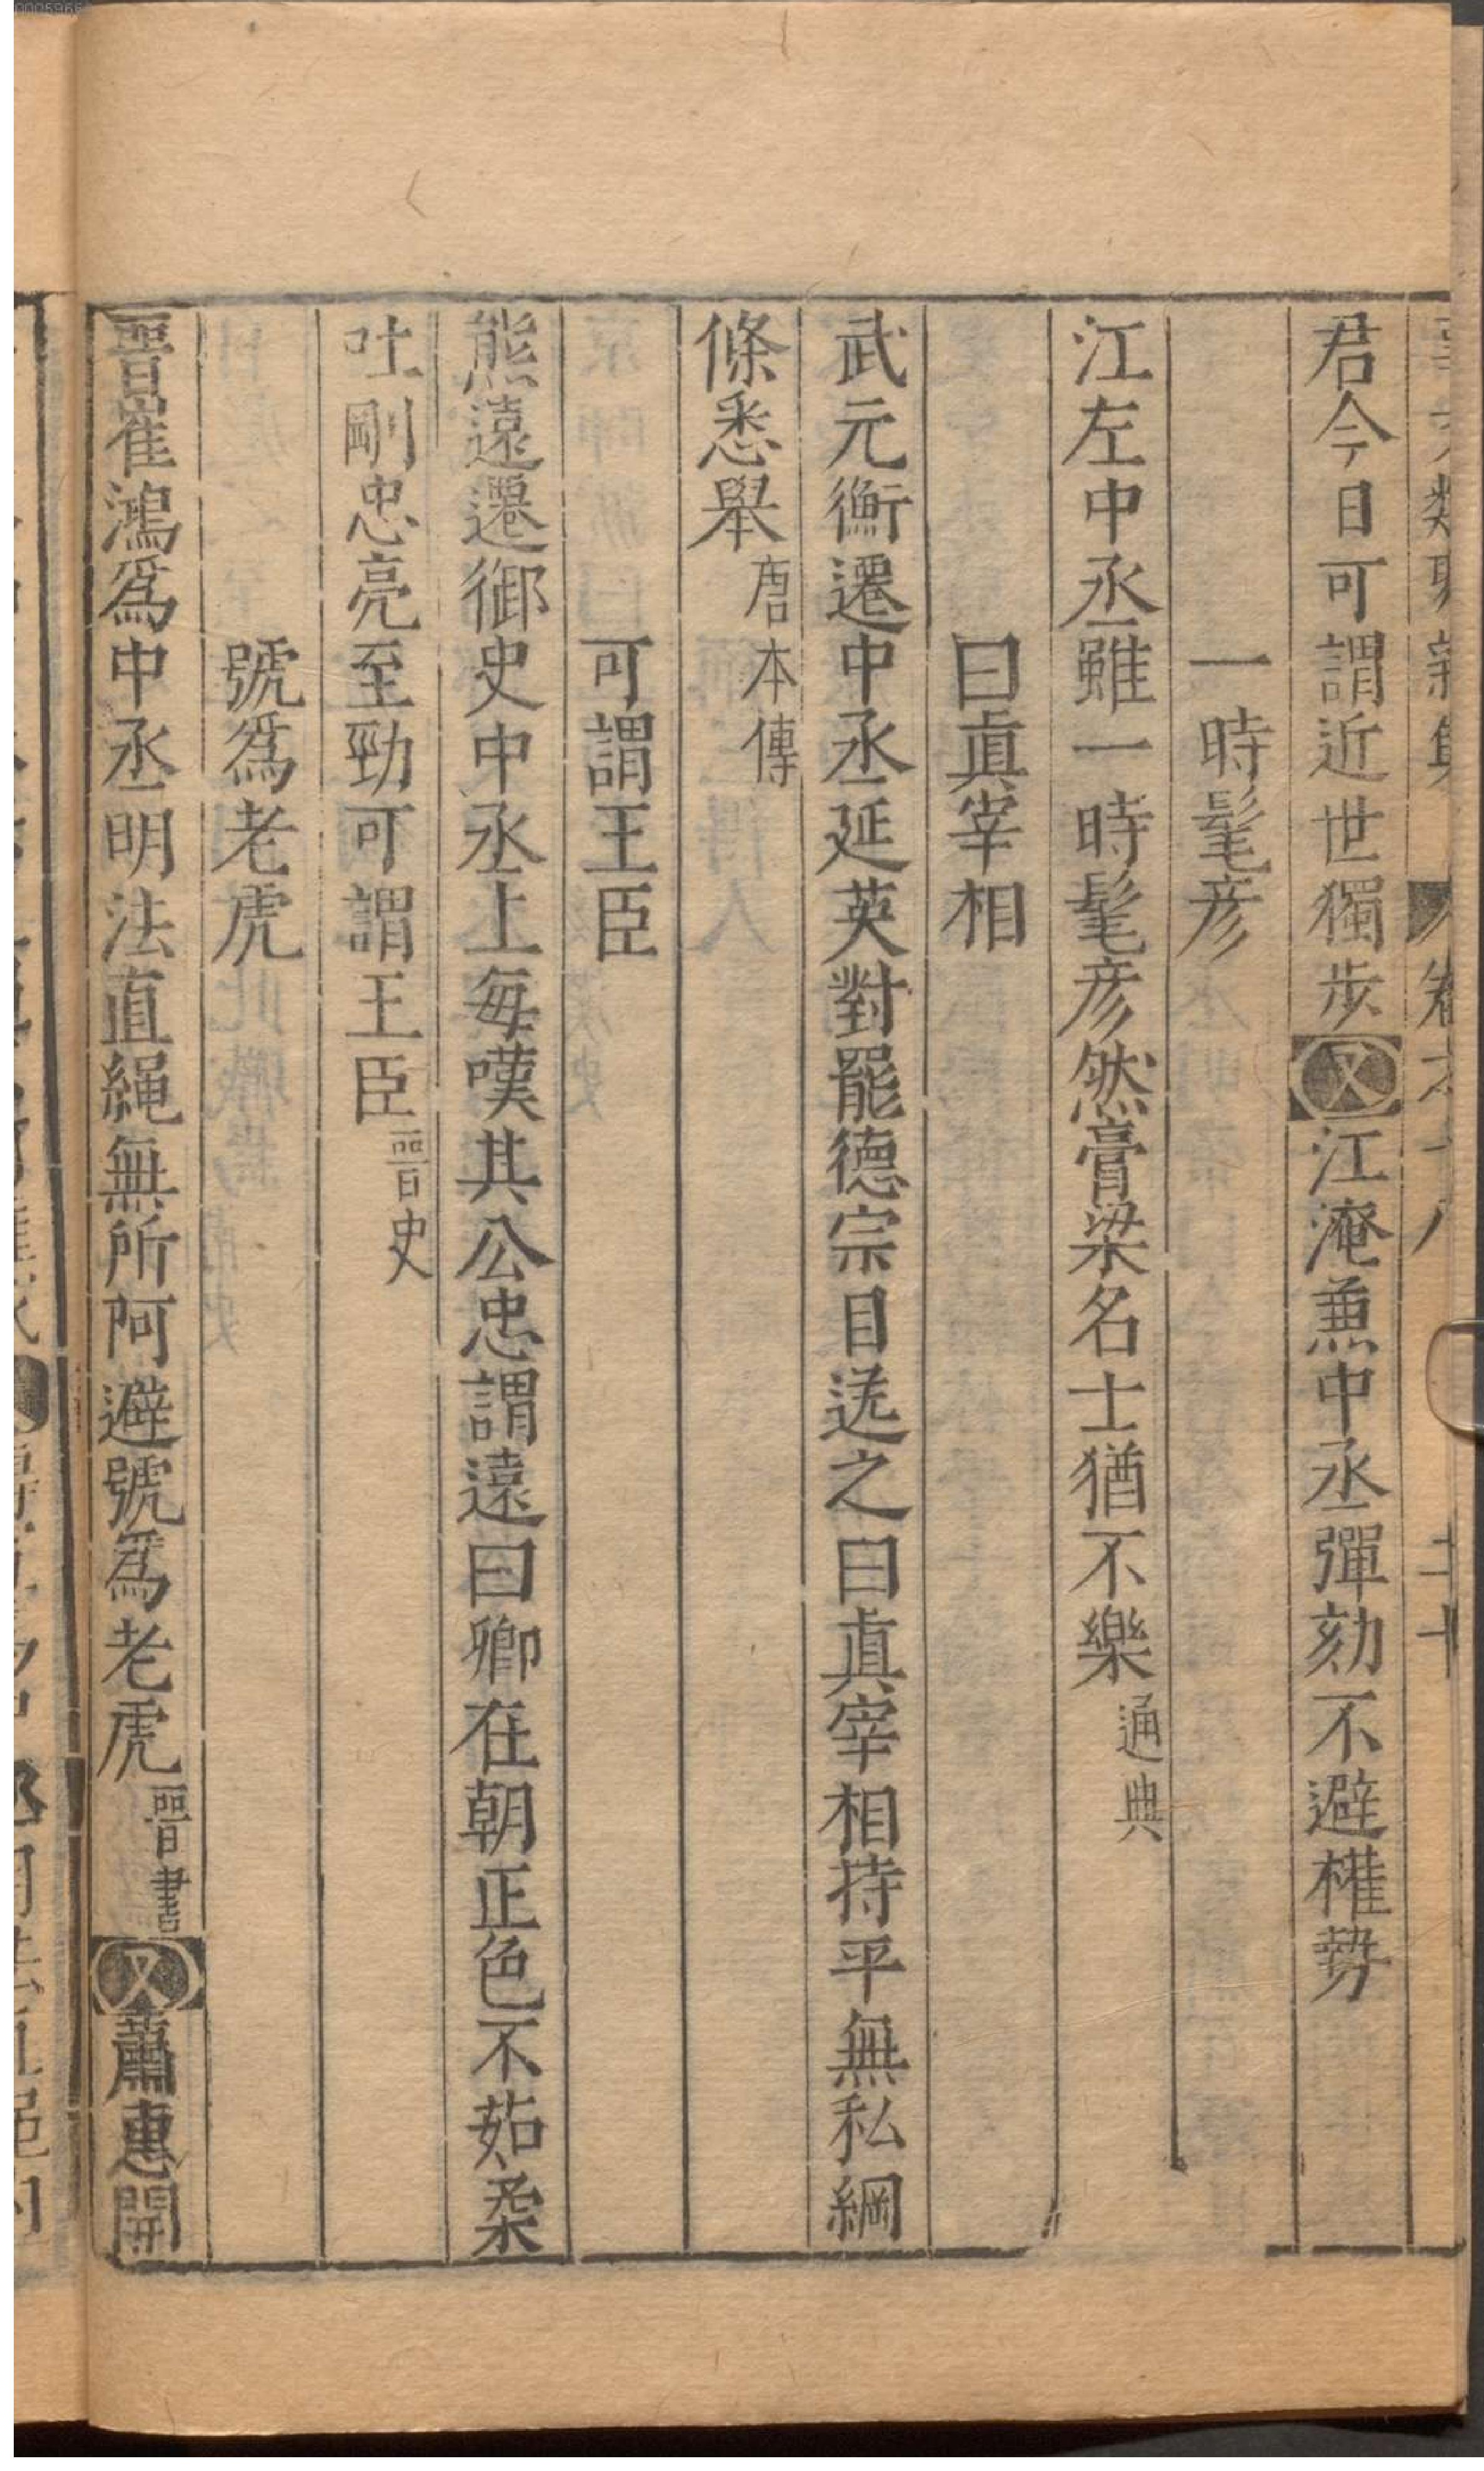 君今日可謂近世獨步又江淹兼中丞彈劾不避權勢
一時髦彦
江左中丞雖一時髦彦然膏粱名士猶不樂通典
曰真宰相
武元衡遷中丞延英對罷德宗目送之曰真宰相持平無私綱
條悉舉唐本傳
可謂王臣
熊遠遷御史中丞上每嘆其公忠謂遠曰卿在朝正色不茹柔
吐剛忠亮至勁可謂王臣晉史
號為老虎
晉崔鴻為中丞明法直繩無所阿避號為老虎晉書又蕭惠開